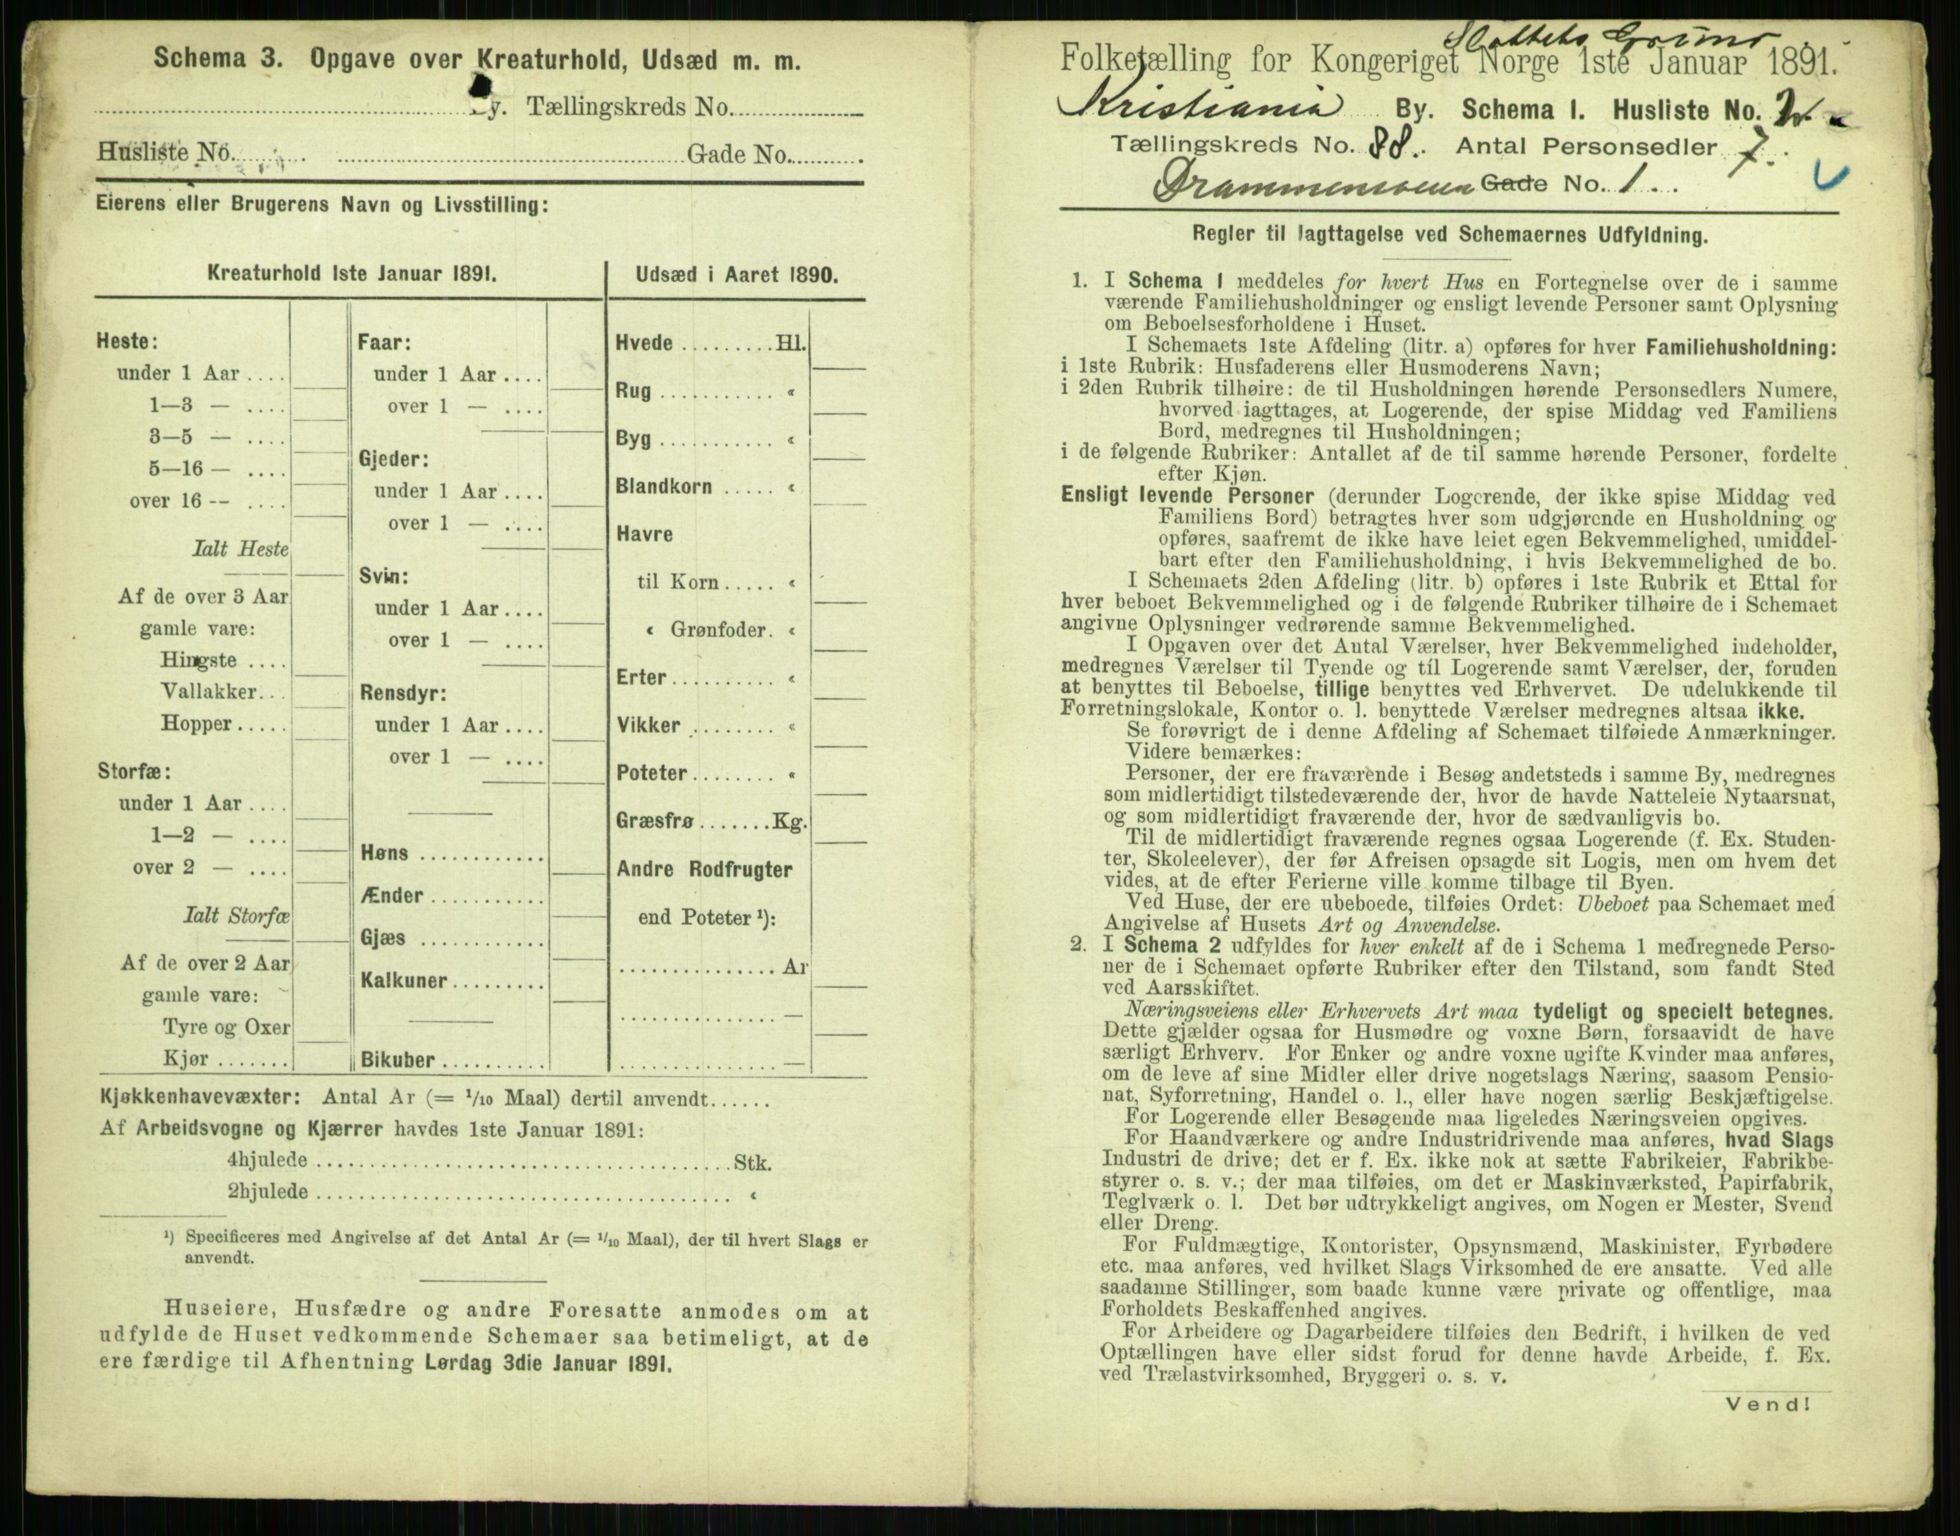 Schema 3. Opgave over Kreaturhold, Udsæd m. m.
By. Tællingskreds No.
Husliste No. Gade No.
Eierens eller Brugerens Navn og Livsstilling:
Kreaturhold 1ste Januar 1891.
Heste:
under 1 Aar ....
1—3 — ....
3—5 — ....
5—16 — ....
over 16 -- ....
Ialt Heste
Af de over 3 Aar
gamle vare:
Hingste ....
Vallakker...
Hopper.....
Storfæ:
under 1 Aar ....
1—2 — ....
over 2 — ....
Ialt Storfæ
Af de over 2 Aar
gamle vare:
Tyre og Oxer
Kjør .......
Faar:
under 1 Aar ....
over 1 — ....
Gjeder:
under 1 Aar ....
over 1 — ....
Svin:
under 1 Aar ....
over 1 — ....
Rensdyr:
under 1 Aar ....
over 1 — ....
Høns ............
Ænder ...........
Gjæs ............
Kalkuner.........
Bikuber ..........
Udsæd i Aaret 1890.
Hvede .........Hl.
Rug ........... «
Byg ........... «
Blandkorn ..... «
Havre
til Korn ..... «
« Grønfoder. «
Erter.......... «
Vikker ........ «
Poteter........ «
Græsfrø .......Kg.
Andre Rodfrugter
end Poteter ¹):
............... Ar
............... —
............... —
Kjøkkenhavevæxter: Antal Ar (= 1/10 Maal) dertil anvendt......
Af Arbeidsvogne og Kjærrer havdes 1ste Januar 1891:
4hjulede ....................................... Stk.
2hjulede ....................................... «
¹) Specificeres med Angivelse af det Antal Ar (= 1/10 Maal), der til hvert Slags er
anvendt.
Huseiere, Husfædre og andre Foresatte anmodes om at
udfylde de Huset vedkommende Schemaer saa betimeligt, at de
ere færdige til Afhentning Lørdag 3die Januar 1891.
Slottets Grund
Folketælling for Kongeriget Norge 1ste Januar 1891.
Kristiania By. Schema I. Husliste No.
Tællingskreds No. 88. Antal Personsedler 7.
Drammensveien Gade No. 1.
Regler til Iagttagelse ved Schemaernes Udfyldning.
1. I Schema 1 meddeles for hvert Hus en Fortegnelse over de i samme
værende Familiehusholdninger og ensligt levende Personer samt Oplysning
om Beboelsesforholdene i Huset.
I Schemaets 1ste Afdeling (litr. a) opføres for hver Familiehusholdning:
i 1ste Rubrik: Husfaderens eller Husmoderens Navn;
i 2den Rubrik tilhøire: de til Husholdningen hørende Personsedlers Numere,
hvorved iagttages, at Logerende, der spise Middag ved Familiens
Bord, medregnes til Husholdningen;
i de følgende Rubriker: Antallet af de til samme hørende Personer, fordelte
efter Kjøn.
Ensligt levende Personer (derunder Logerende, der ikke spise Middag ved
Familiens Bord) betragtes hver som udgjørende en Husholdning og
opføres, saafremt de ikke have leiet egen Bekvemmelighed, umiddel-
bart efter den Familiehusholdning, i hvis Bekvemmelighed de bo.
I Schemaets 2den Afdeling (litr. b) opføres i 1ste Rubrik et Ettal for
hver beboet Bekvemmelighed og i de følgende Rubriker tilhøire de i Schemaet
angivne Oplysninger vedrørende samme Bekvemmelighed.
I Opgaven over det Antal Værelser, hver Bekvemmelighed indeholder,
medregnes Værelser til Tyende og til Logerende samt Værelser, der, foruden
at benyttes til Beboelse, tillige benyttes ved Erhvervet. De udelukkende til
Forretningslokale, Kontor o. l. benyttede Værelser medregnes altsaa ikke.
Se forøvrigt de i denne Afdeling af Schemaet tilføiede Anmærkninger.
Videre bemærkes:
Personer, der ere fraværende i Besøg andetsteds i samme By, medregnes
som midlertidigt tilstedeværende der, hvor de havde Natteleie Nytaarsnat,
og som midlertidigt fraværende der, hvor de sædvanligvis bo.
Til de midlertidigt fraværende regnes ogsaa Logerende (f. Ex. Studen-
ter, Skoleelever), der før Afreisen opsagde sit Logis, men om hvem det
vides, at de efter Ferierne ville komme tilbage til Byen.
Ved Huse, der ere ubeboede, tilføies Ordet: Ubeboet paa Schemaet med
Angivelse af Husets Art og Anvendelse.
2. I Schema 2 udfyldes for hver enkelt af de i Schema 1 medregnede Perso-
ner de i Schemaet opførte Rubriker efter den Tilstand, som fandt Sted
ved Aarsskiftet.
Næringsveiens eller Erhvervets Art maa tydeligt og specielt betegnes.
Dette gjælder ogsaa for Husmødre og voxne Børn, forsaavidt de have
særligt Erhverv. For Enker og andre voxne ugifte Kvinder maa anføres,
om de leve af sine Midler eller drive nogetslags Næring, saasom Pensio-
nat, Syforretning, Handel o. l., eller have nogen særlig Beskjæftigelse.
For Logerende eller Besøgende maa ligeledes Næringsveien opgives.
For Haandværkere og andre Industridrivende maa anføres, hvad Slags
Industri de drive; det er f. Ex. ikke nok at sætte Fabrikeier, Fabrikbe-
styrer o. s. v.; der maa tilføies, om det er Maskinværksted, Papirfabrik,
Teglværk o. l. Det bør udtrykkeligt angives, om Nogen er Mester, Svend
eller Dreng.
For Fuldmægtige, Kontorister, Opsynsmænd, Maskinister, Fyrbødere
etc. maa anføres, ved hvilket Slags Virksomhed de ere ansatte. Ved alle
saadanne Stillinger, som baade kunne være private og offentlige, maa
Forholdets Beskaffenhed angives.
For Arbeidere og Dagarbeidere tilføies den Bedrift, i hvilken de ved
Optællingen have eller sidst forud for denne havde Arbeide, f. Ex.
ved Trælastvirksomhed, Bryggeri o. s. v.
Vend!